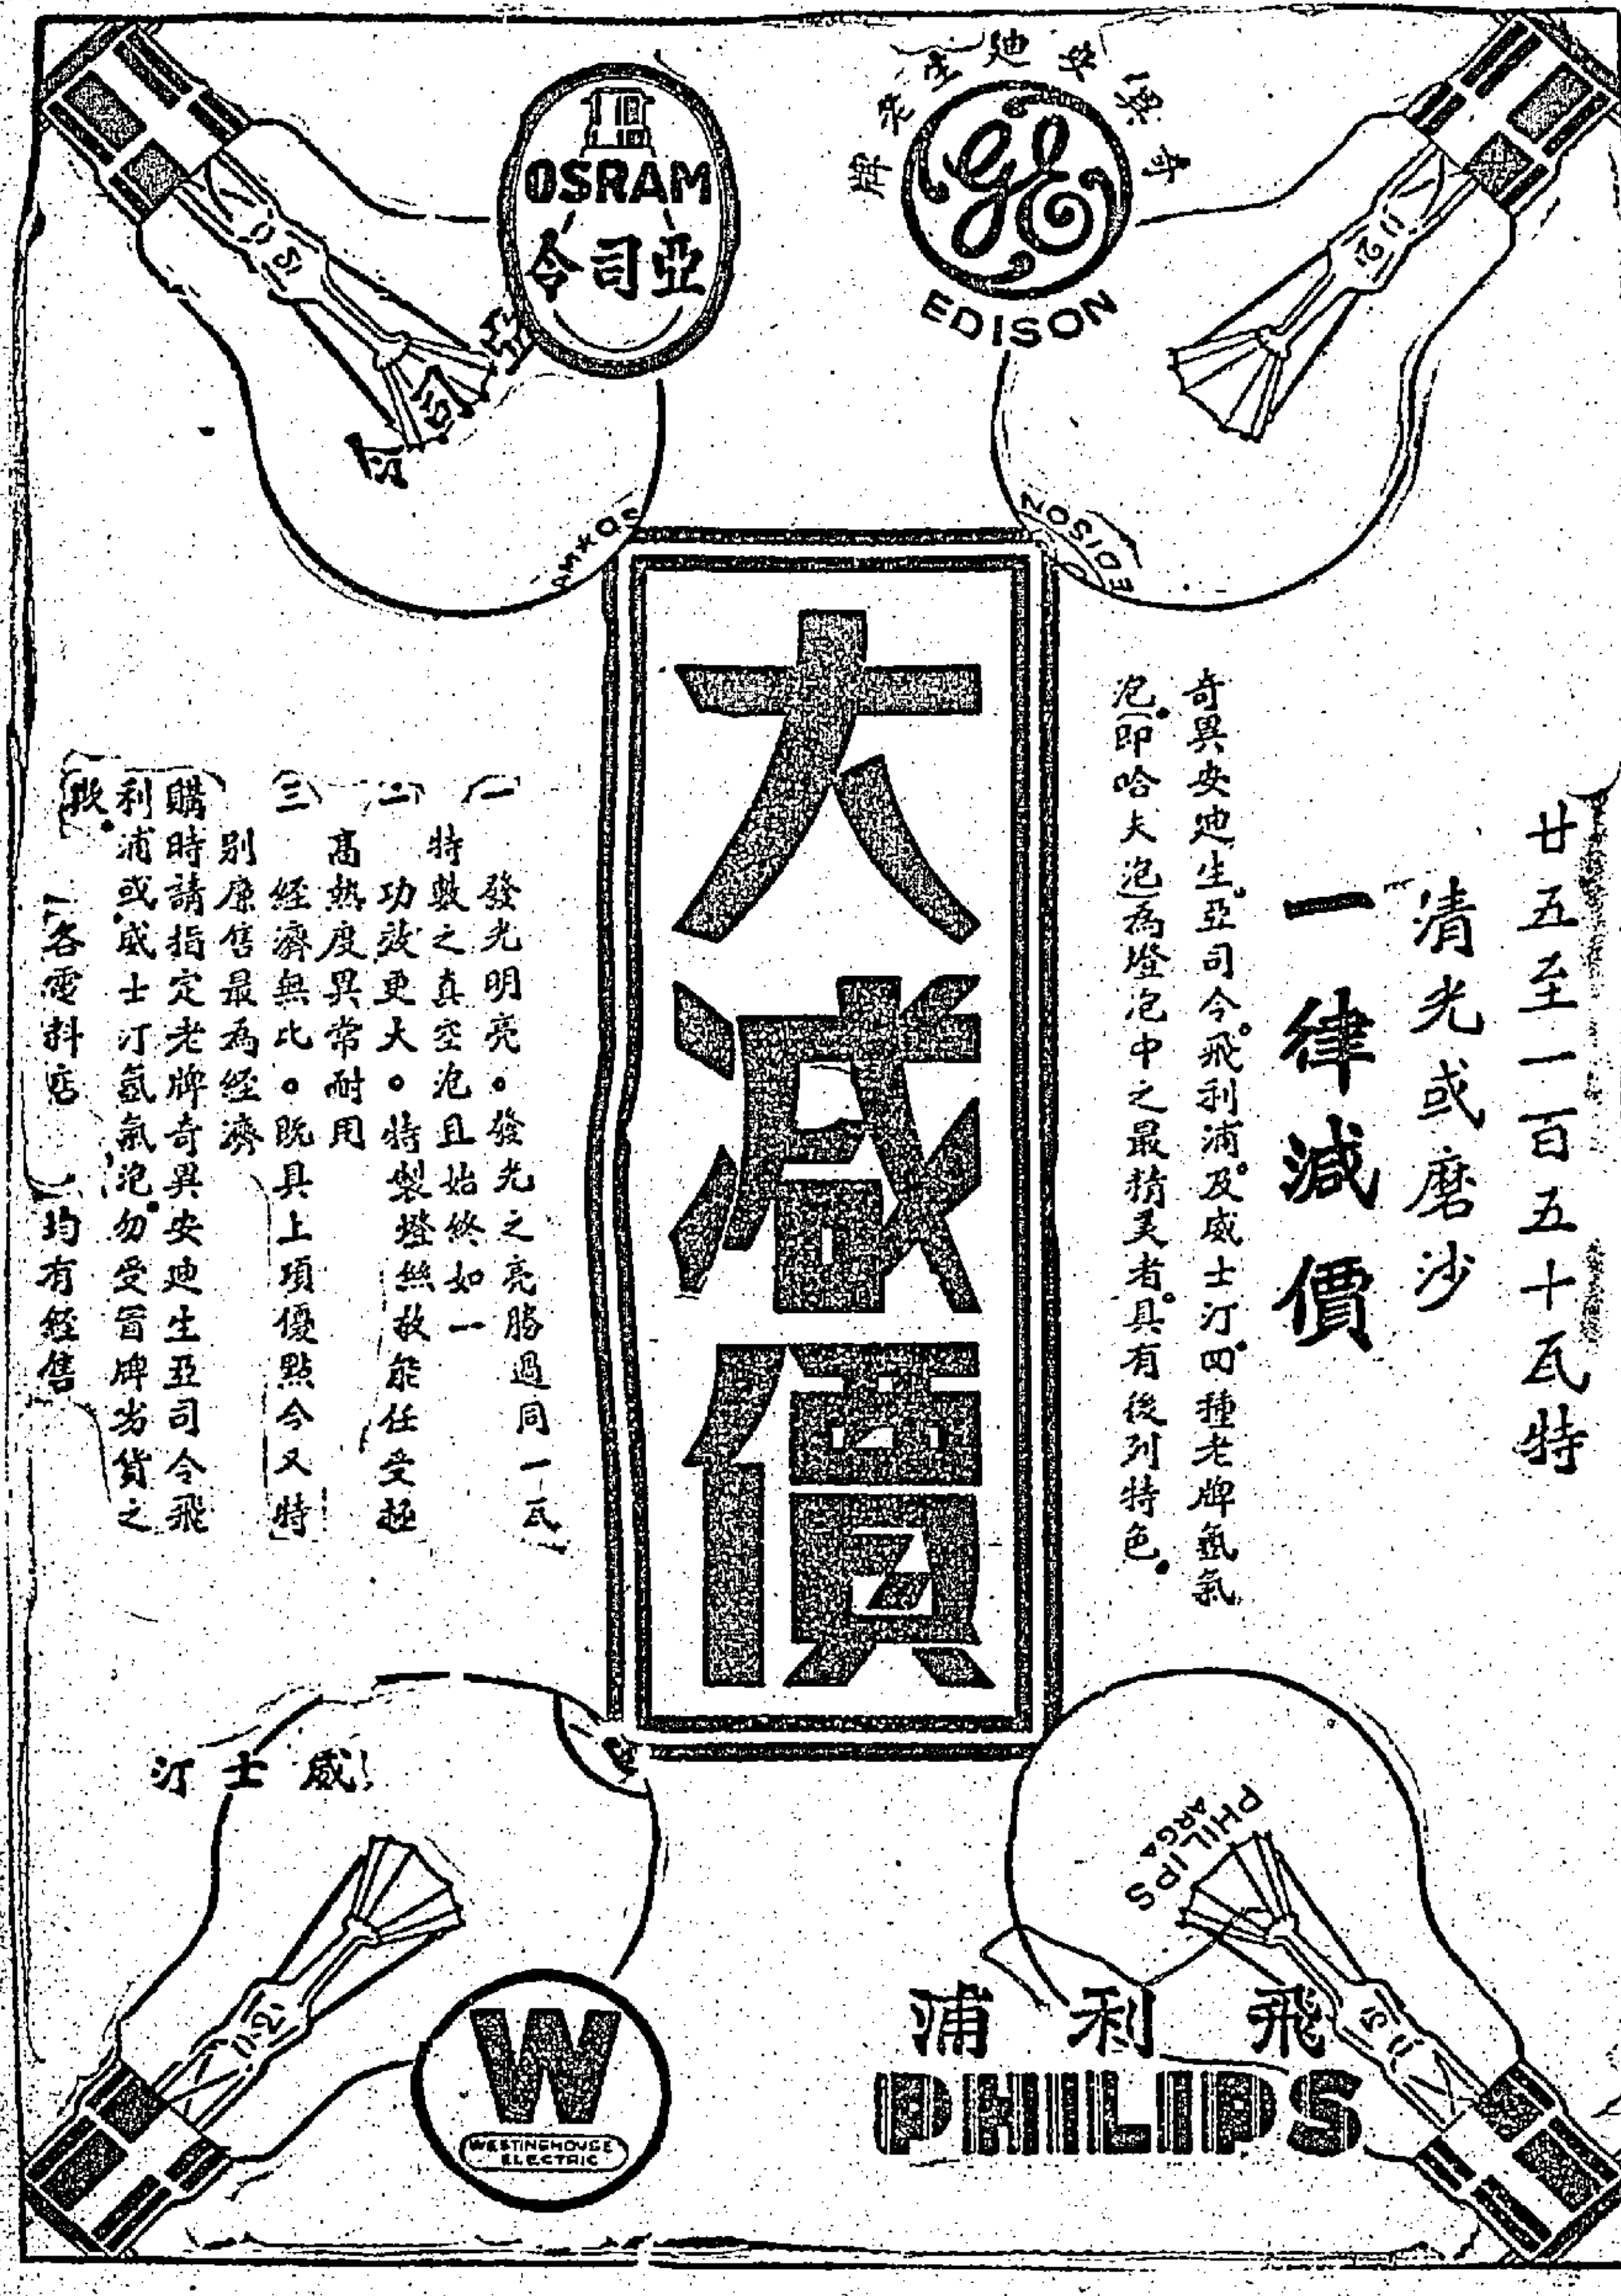 奇異安迪生老牌
GE
EDISON
OSRAM
亞司令
亞司令
EDISON
大減價
廿五至一百五十瓦特
清光或磨沙
一律減價
奇異安迪生。亞司令。飛利浦。及威士汀。四種老牌氬氣
泡。(即哈夫泡)為燈泡中之最精美者。具有後列特色。
(一)
發光明亮。發光之亮勝過同一瓦
特數之真空泡且始終如一
(二)
功效更大。特製燈絲故能任受極
高熱度異常耐用
(三)
經濟無比。既具上項優點今又特
別廉售最為經濟
購時請指定老牌奇異安迪生亞司令飛
利浦或威士汀氬氣泡。勿受冒牌劣貨之
欺。
各電料店 均有經售
威士汀
W
WESTINGHOUSE
ELECTRIC
PHILIPS
ARGA
飛利浦
PHILIPS